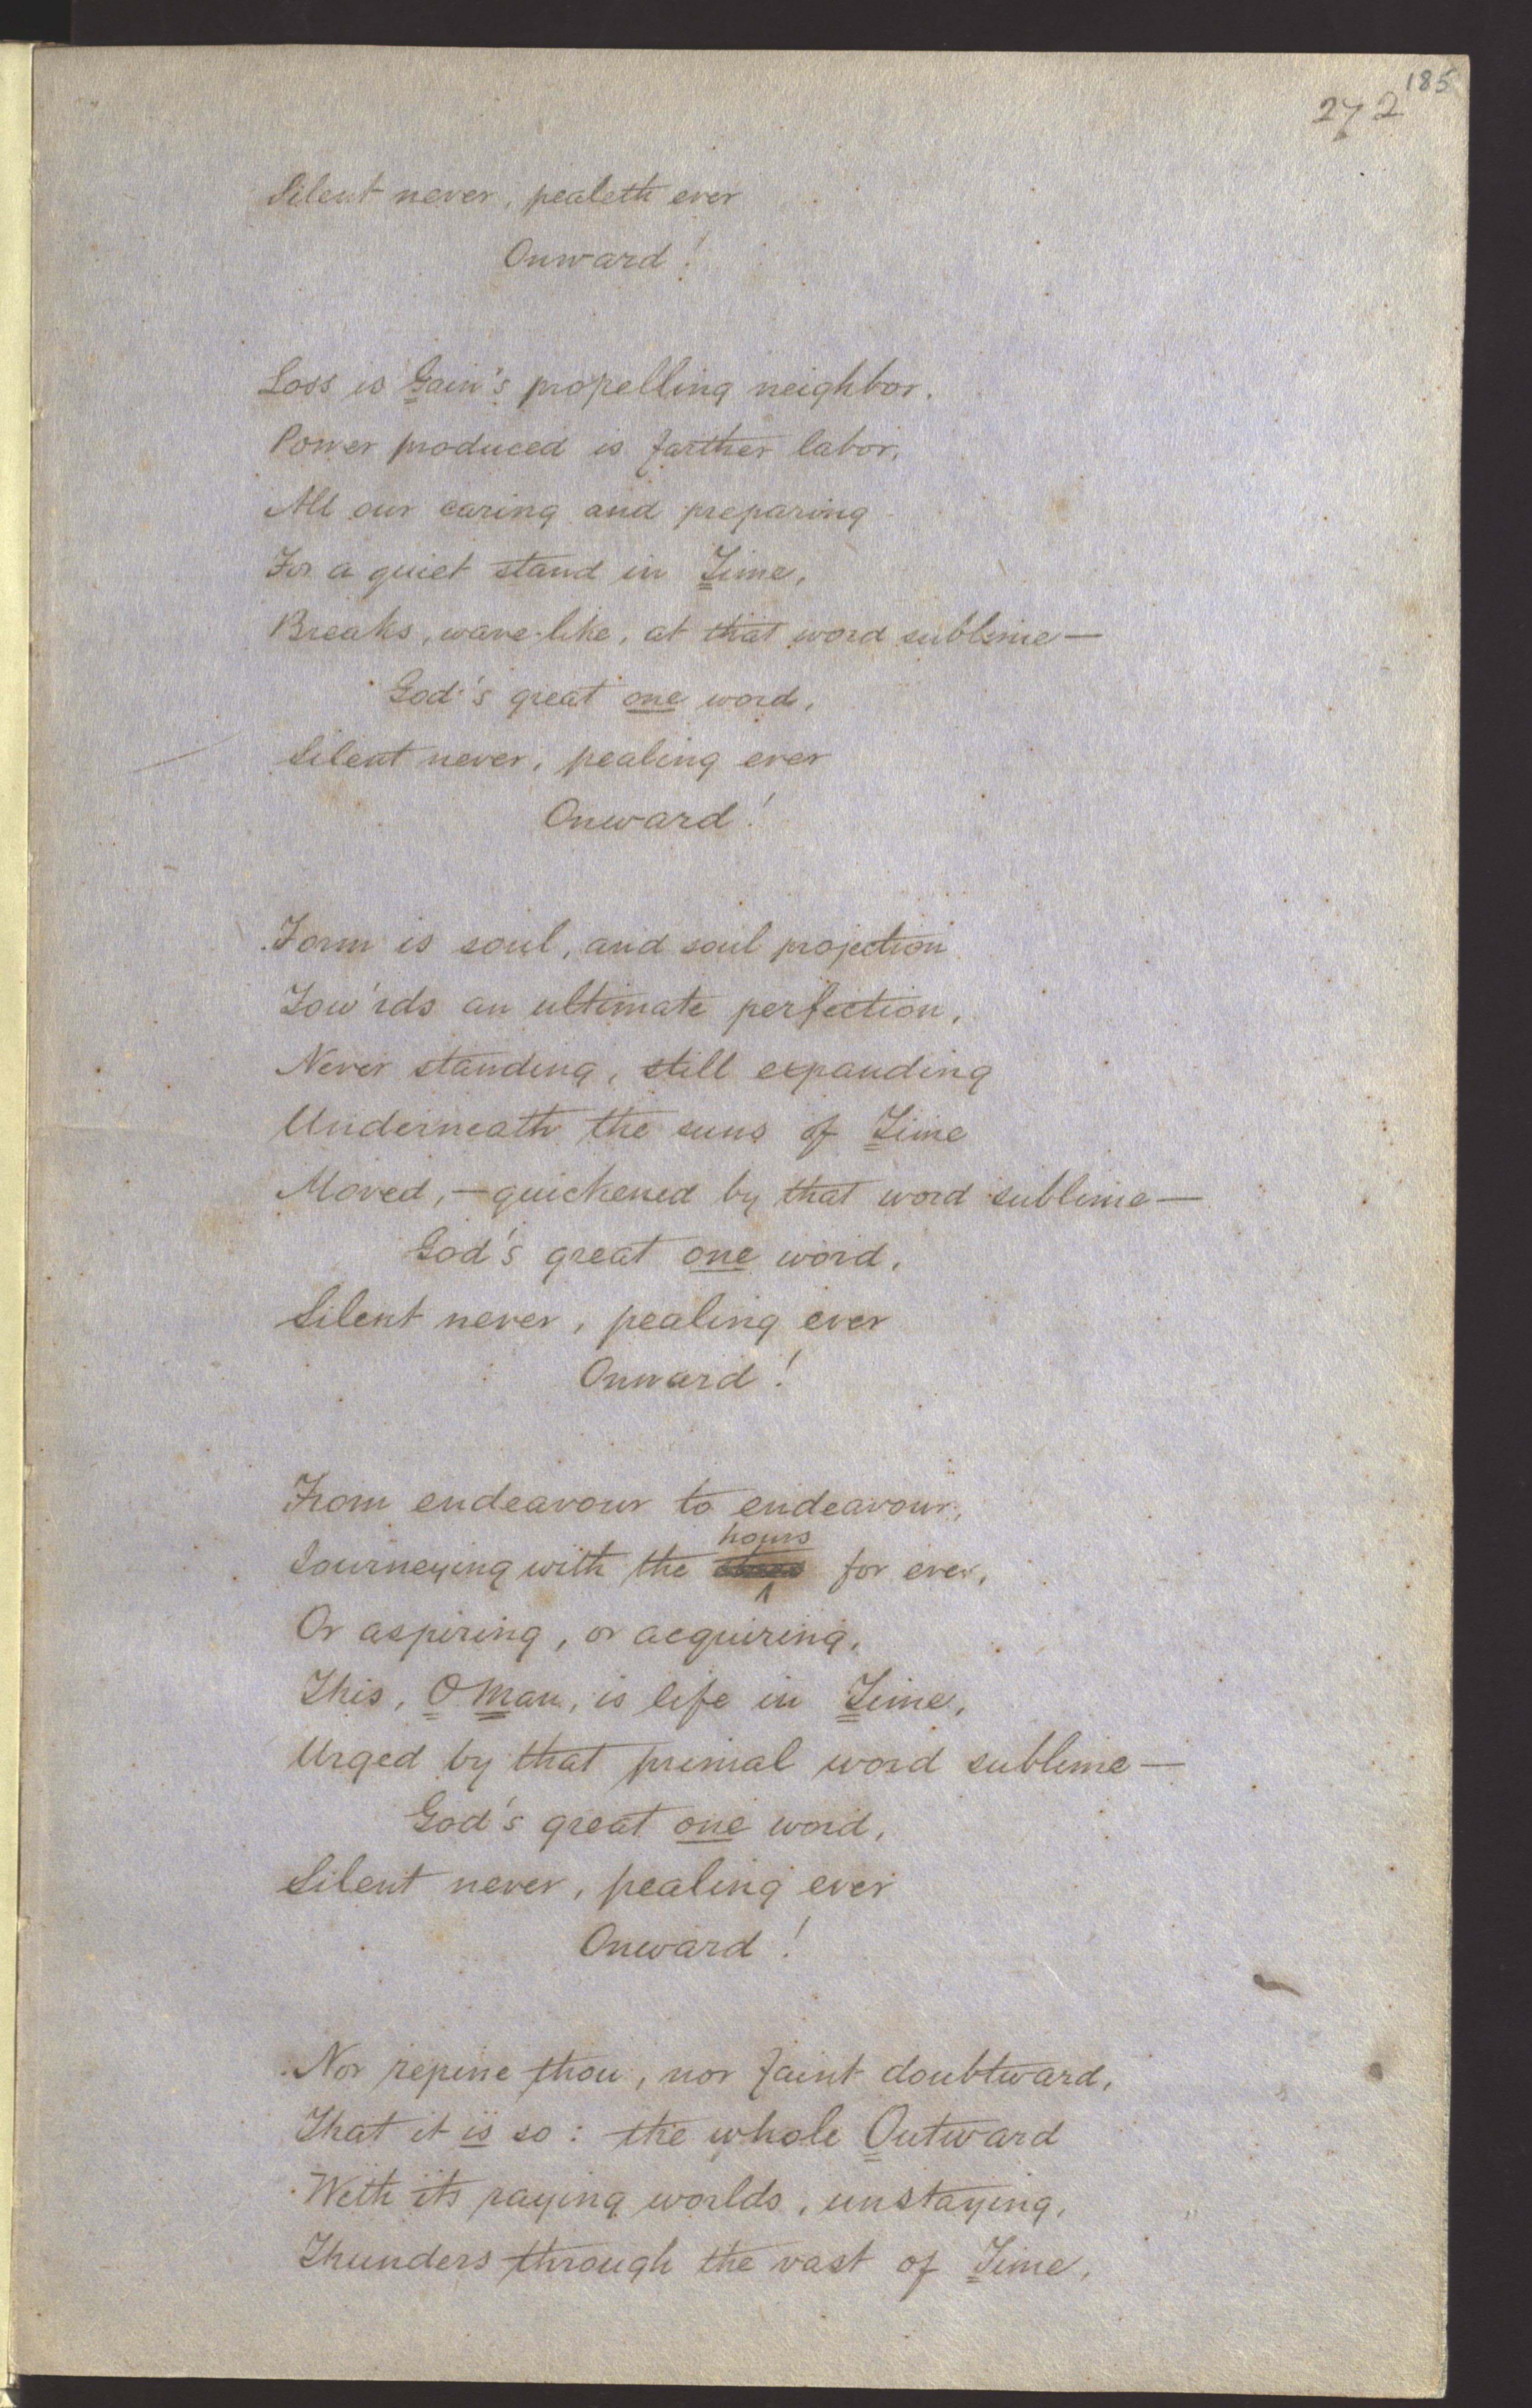 185
272
Silent never, pealeth ever
Onward!
Loss is Gain's propelling neighbor.
Power produced is farther labor,
All our caring and preparing
For a quiet stand in Time,
Breaks, wave-like, at that word sublime—
God's great one word,
Silent never, pealing ever
Onward!
Form is soul, and soul projection
Tow'rds an ultimate perfection,
Never standing, still expanding
Underneath the suns of Time
Moved,—quickened by that word sublime—
God's great one word,
Silent never, pealing ever
Onward!
From endeavour to endeavour,
hours
Journeying with the for ever,
Or aspiring, or acquiring,
This, O Man, is life in Time,
Urged by that primal word sublime—
God's great one word,
Silent never, pealing ever
Onward!
Nor repine thou, nor faint doubtward,
That it is so: the whole Outward
With its raying worlds, unstaying,
Thunders through the vast of Time,